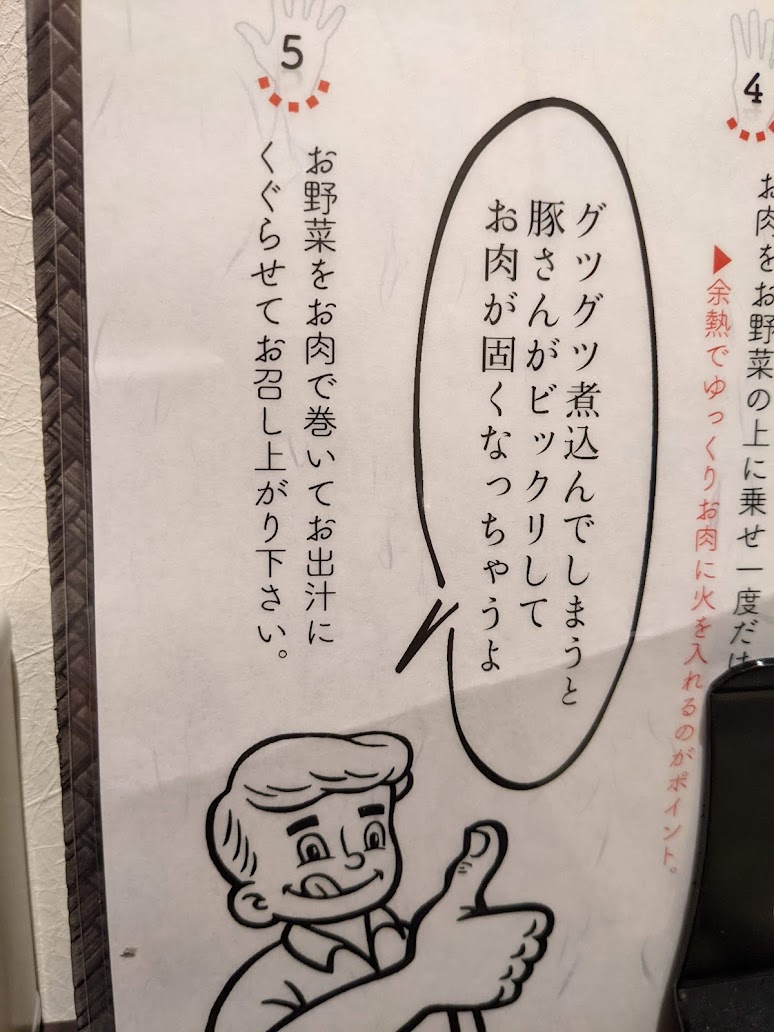 4
お肉をお野菜の上に乗せ一度だけ
▶余熱でゆっくりお肉に火を入れるのがポイント。
グツグツ煮込んでしまうと
豚さんがビックリして
お肉が固くなっちゃうよ
5
お野菜をお肉で巻いてお出汁に
くぐらせてお召し上がり下さい。